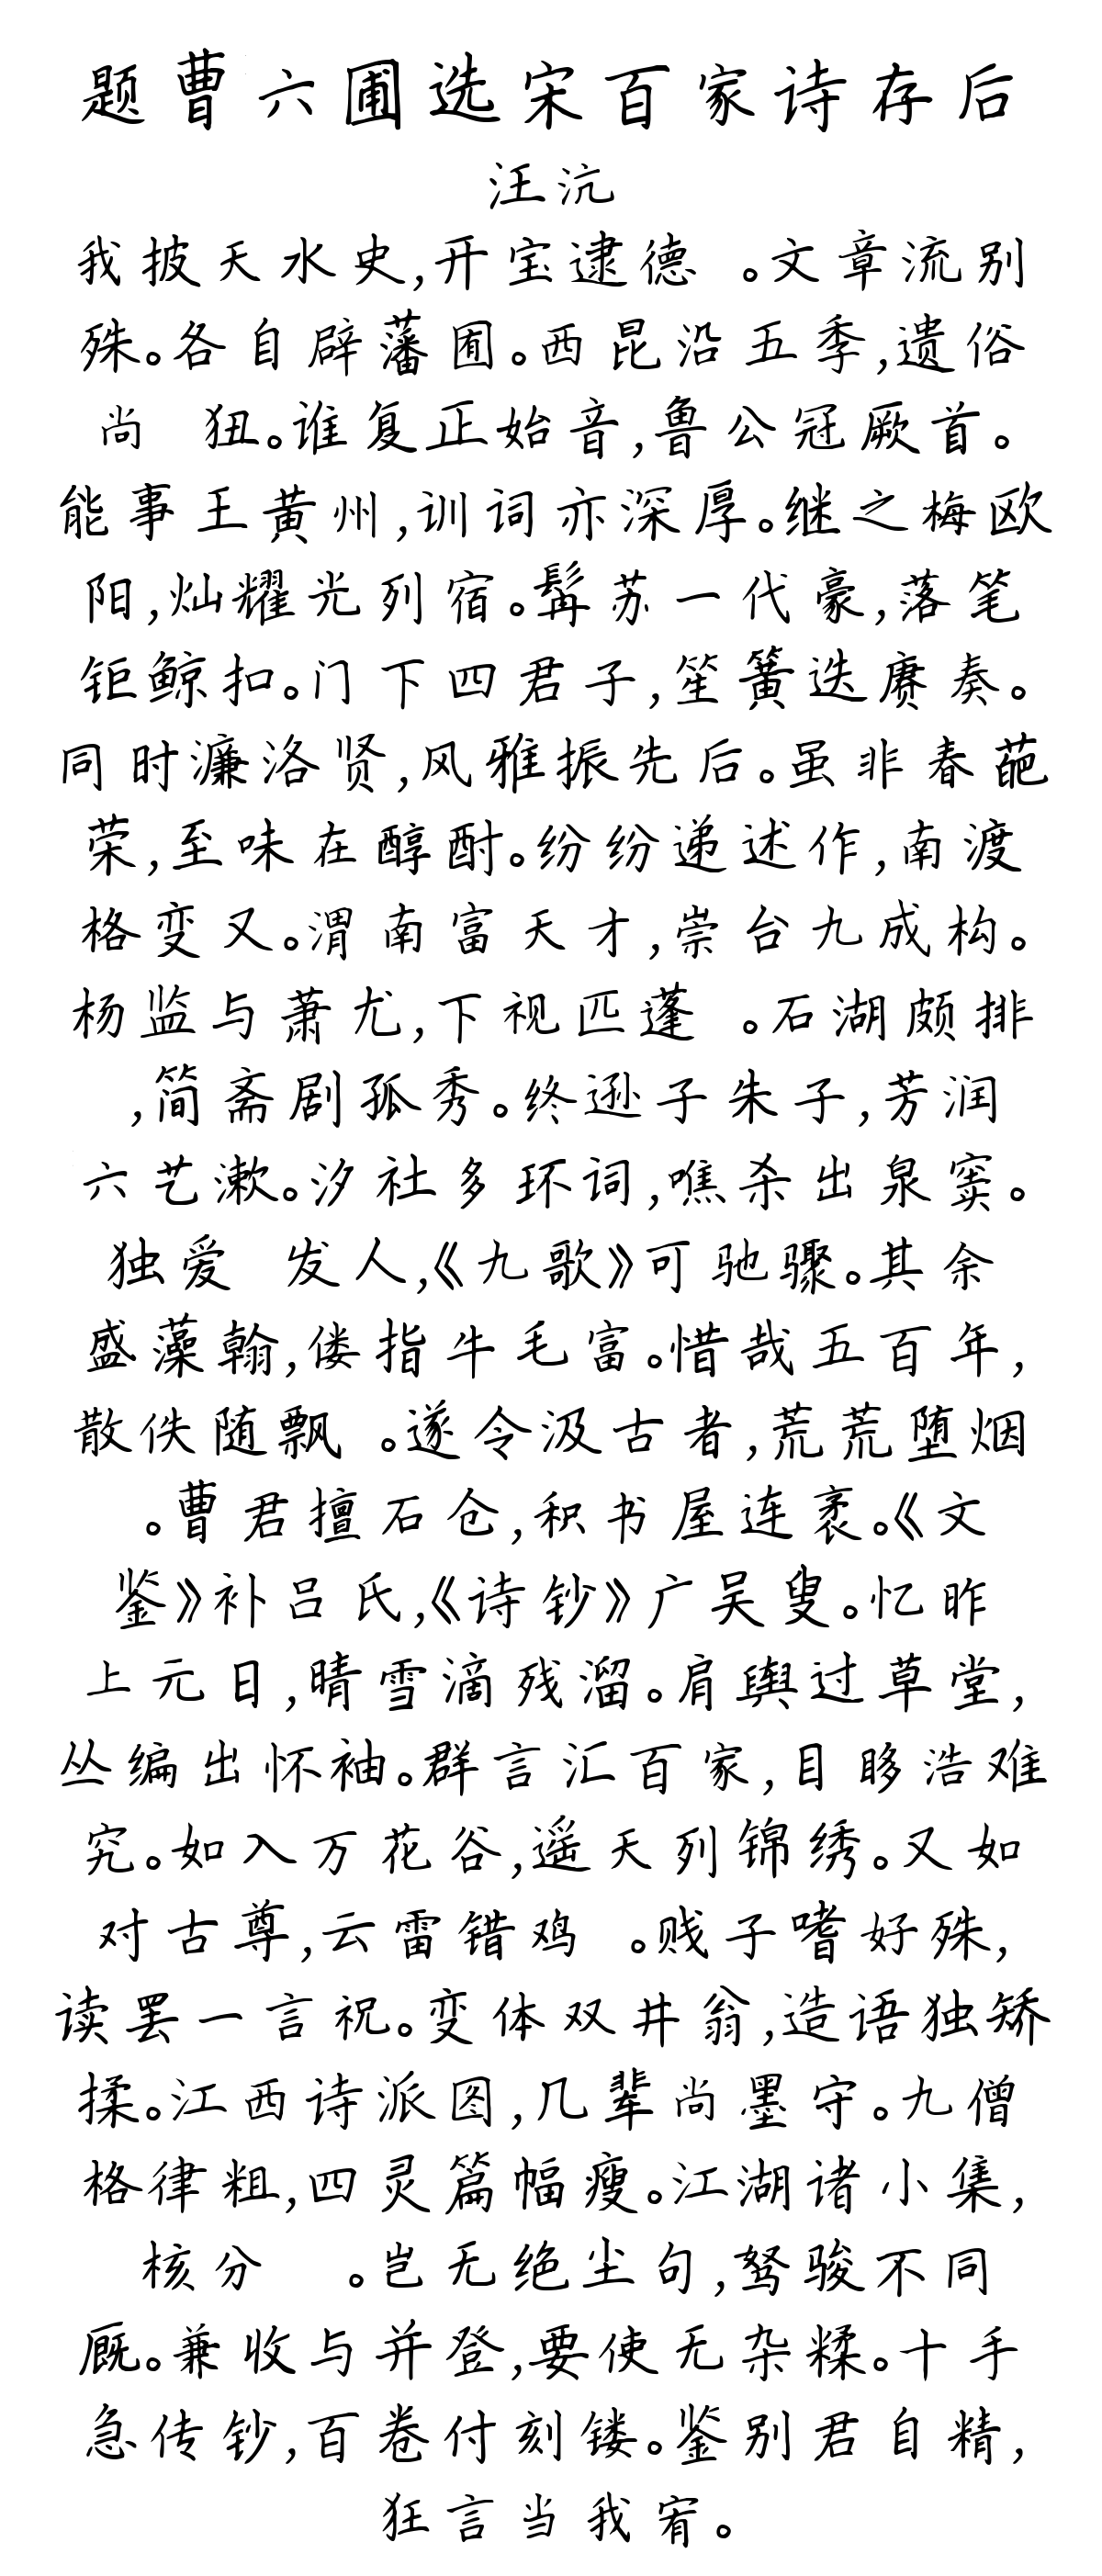 题曹六圃选宋百家诗存后
汪沆
我披天水史,开宝逮德 。文章流别
殊。各自辟藩囿。西昆沿五季,遗俗
尚 狃。谁复正始音,鲁公冠厥首。
能事王黄州,训词亦深厚。继之梅欧
阳,灿耀光列宿。髯苏一代豪,落笔
钜鲸扣。门下四君子,笙簧迭赓奏。
同时濂洛贤,风雅振先后。虽非春葩
荣,至味在醇酎。纷纷递述作,南渡
格变又。渭南富天才,崇台九成构。
杨监与萧尤,下视匹蓬 。石湖颇排
,简斋剧孤秀。终逊子朱子,芳润
六艺漱。汐社多环词,噍杀出泉窦。
独爱 发人,《九歌》可驰骤。其余
盛藻翰,偻指牛毛富。惜哉五百年,
散佚随飘 。遂令汲古者,荒荒堕烟
。曹君擅石仓,积书屋连袤。《文
鉴》补吕氏,《诗钞》广吴叟。忆昨
上元日,晴雪滴残溜。肩舆过草堂,
丛编出怀袖。群言汇百家,目眵浩难
究。如入万花谷,遥天列锦绣。又如
对古尊,云雷错鸡 。贱子嗜好殊,
读罢一言祝。变体双井翁,造语独矫
揉。江西诗派图,几辈尚墨守。九僧
格律粗,四灵篇幅瘦。江湖诸小集,
核分 。岂无绝尘句,驽骏不同
厩。兼收与并登,要使无杂糅。十手
急传钞,百卷付刻镂。鉴别君自精,
狂言当我宥。